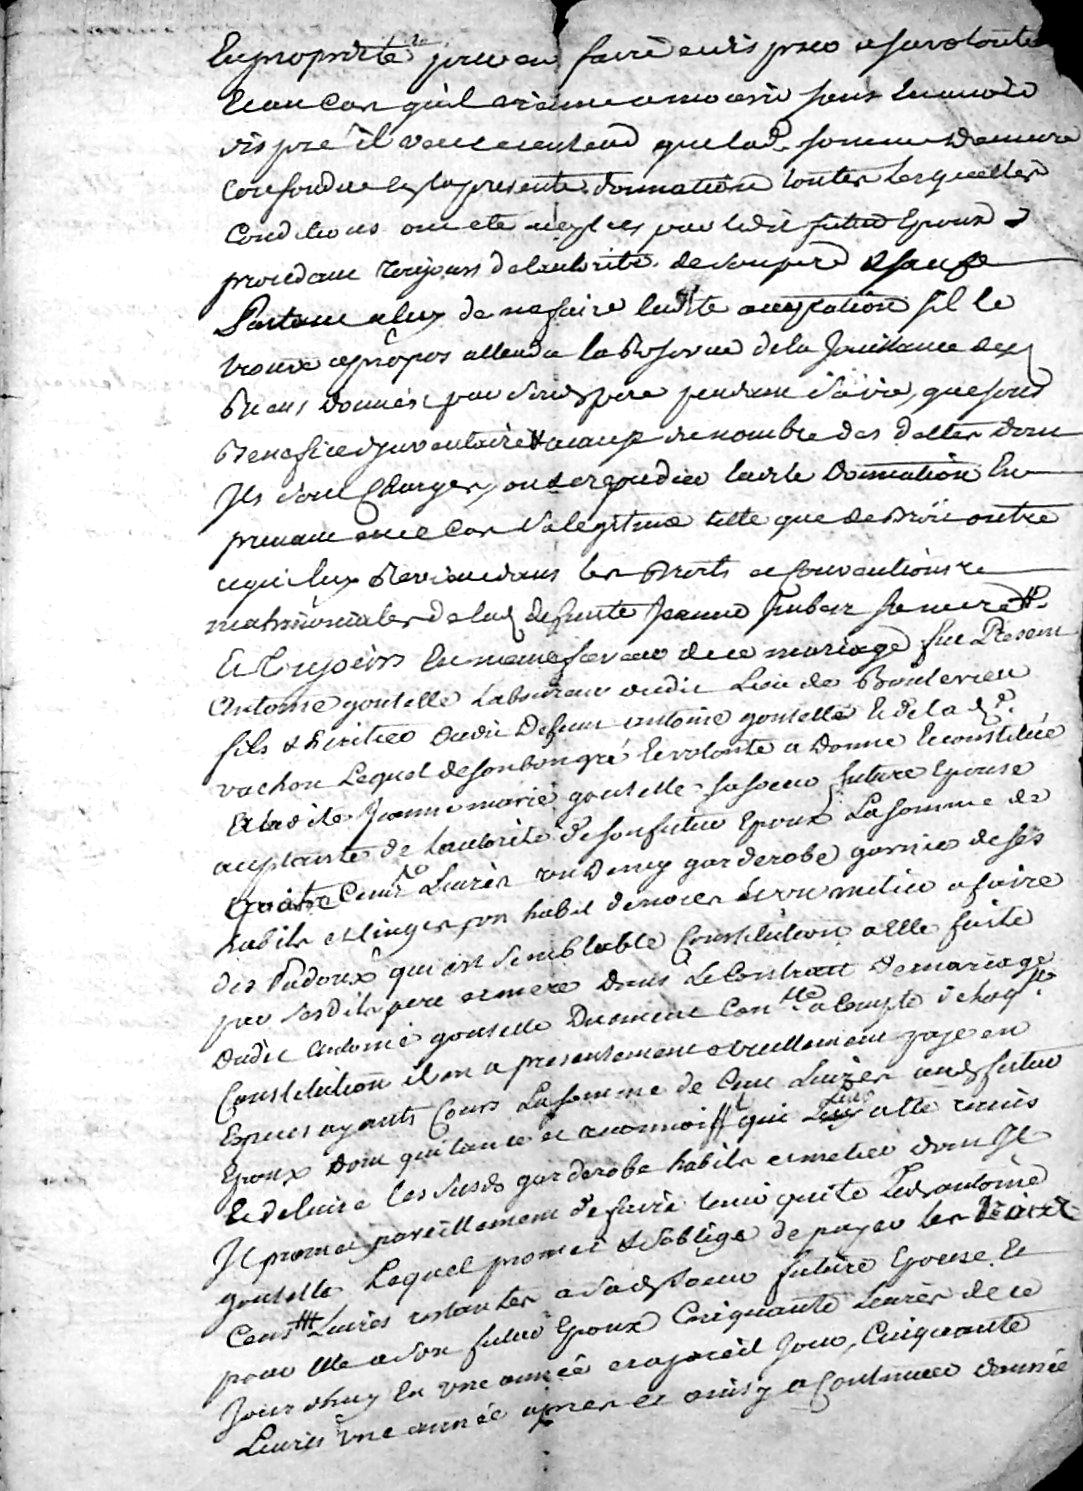 En propriété pour en faire et disposer a sa volonté
Et au Cas qu'il vienne a mourir sans En avoir
disposé il veut et entend que lad. somme Demeure
Confondue En la presente donnation toutes lesquelles
Conditions ont été reglées par ledit futur Epoux
procedant toujours de l'autorité de son pere Et sauf
Partant a luy de ne faire ladite acceptation s'il le
trouve a propos attendu la Reserve de la Jouissance des
Biens donnés par sond. pere pendant sa vie, que sous
Benefice d'inventaire a cause du nombre des dettes dont
Ils sont Chargés, ou de repudier ladite Donnation En
prenant en ce Cas sa legitime telle que de Droit outre
ce qui luy Revient dans les Droits et Conventions
matrimoniales de lad. defunte Jeanne sa mere
Et Toujours En meme faveur de ce mariage fut Present
Antoine goutelle Laboureur dudit Lieu de
fils & heritier dudit Defunt antoine goutelle Et de lad.
vachon Lequel de son bon gré Et volonté a Donné Et constitué
A ladite Jeanne marie goutelle sa soeur future Epouse
acceptante de l'autorité de son futur Epoux La somme de
quatre Cents Livres un Demy garderobe garnie de ses
habits et linges, un habit de noces Et un metier a faire
des Padoux qui est semblable Constitution a elle faite
par sesdits pere et mere dans Le Contrat de mariage
dudit Antoine goutelle a Compte de laq.lle
Constitution il en a presentement et reellement payé en
Especes ayants Cours La somme de Cent Livres aud. futur
Epoux Dont quittance et reconnoiss. qui luy a été remis
Et delivré les susd. garderobe habits et metier dont Il
Il promet pareillement de faire tenir quitte Led. antoine
goutelle Lequel promet & s'oblige de payer les trois
Cents Livres restantes a sad. soeur future Epouse Et
pour Elle a son futur Epoux Cinquante Livres de ce
Jour d'huy En une année et a pareil Jour, Cinquante
Livres une année apres et ainsy a Continuer d'année